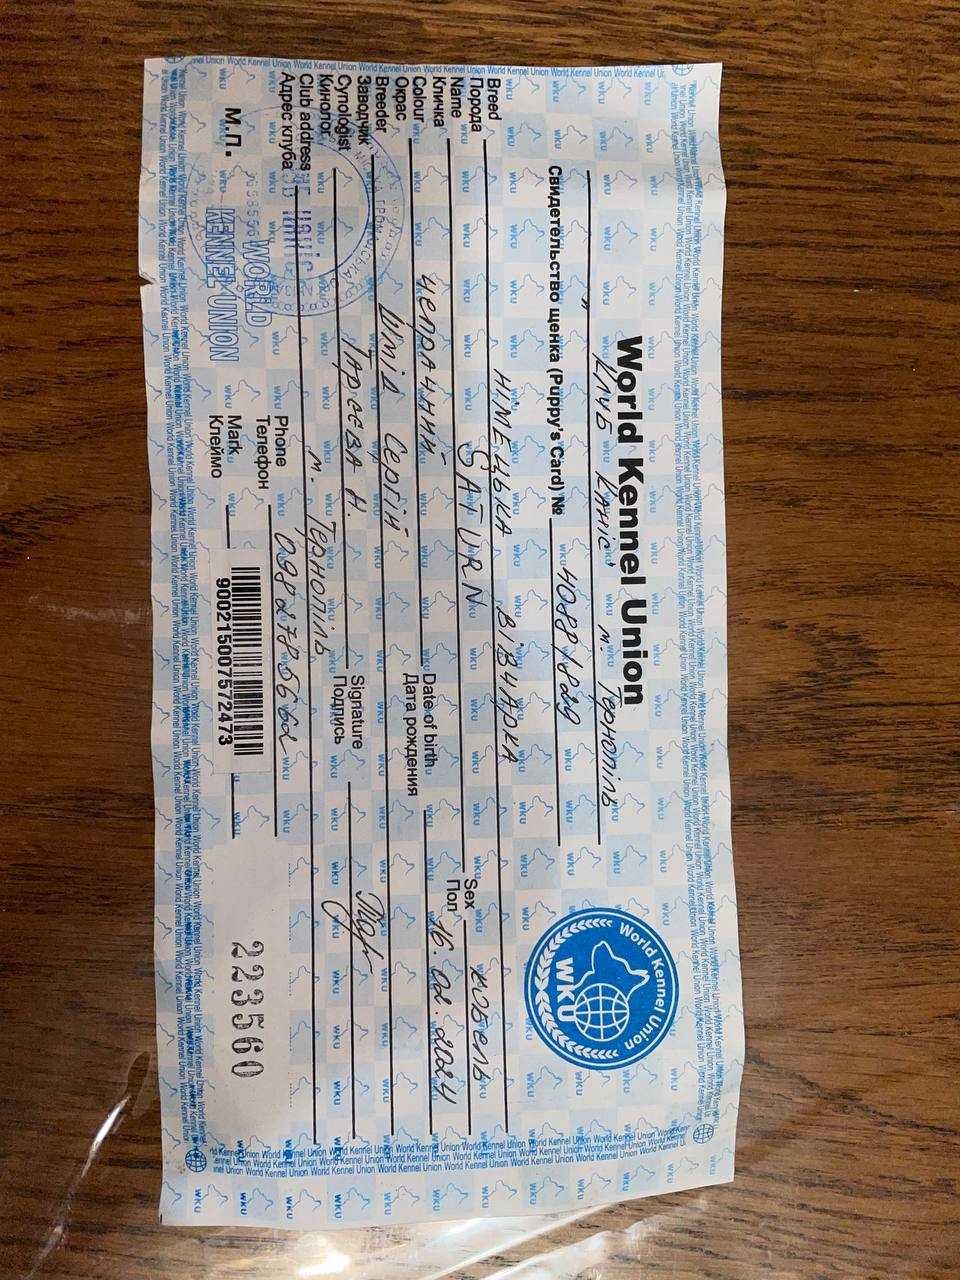 World Kennel Union
"Клуб Каніс" м. Тернопіль
Свидетельство щенка (Puppy's Card) № 4088/1829
Breed
Порода НІМЕЦЬКА ВІВЧАРКА
Name
Кличка SATURN
Sex
Пол кобель
Colour
Окрас чепрачний
Date of birth
Дата рождения 16.02.2024
Breeder
Заводчик Шмід Сергій
Cynologist
Кинолог
Signature
Подпись
Club address
Адрес клуба м. Тернопіль
Phone
Телефон
М.П.
WORLD
KENNEL UNION
Mark
Клеймо
900215007572473
223560
World Kennel Union
WKU